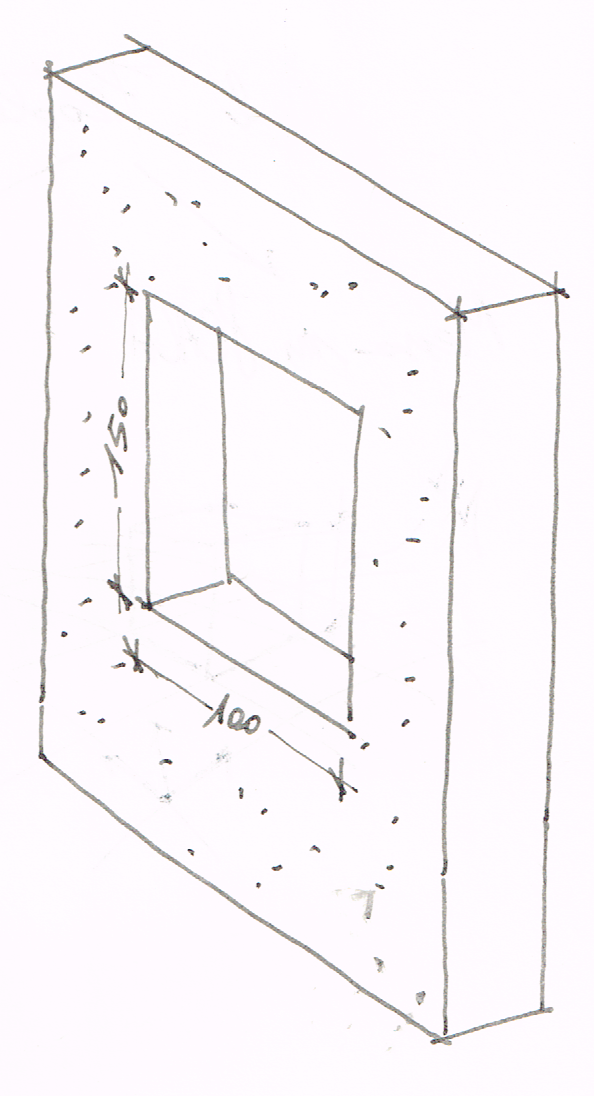 150
100